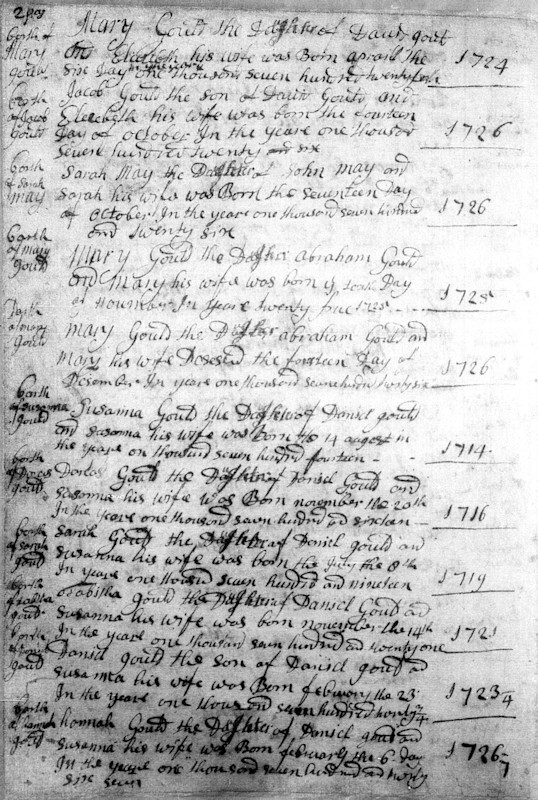 2 pag
borth of Mary gould
Mary Gould the Daghter of David gout
and Elezebeth his wife was Born aprail the
sixe Day In the thousand seven hundred twenty
1724
borth of Jacob gould
Jacob Gould the son of Davit Gould and
Elezebeth his wife was born the fourteen
Day of october In the yeare one thousand
seven hundred twenty and six
1726
borth of sarah may
Sarah May the Daghter of John may and
Sarah his wife was Born the seventeen Day
of october In the yeare one thousand seven hundred
and twenty six
1726
borth of mary gould
Mary Gould the Daghter abraham Gould
and Mary his wife was born Day
of In yeare twenty five 1725
1725
gould
Mary Gould the Daghter abraham Gould and
Mary his wife Desesed the fourteen Day of
Desember In yeare one thousand seven hundred twenty six
1726
borth of susanna gould
Susanna Gould the Daghter of Daniel gould
and susanna his wife was Born the 14 august in
the yeare on thousand seven hundred fourteen
1714
borth of Dorcas gould
Dorcas Gould the Daghter of Daniel Gould and
susanna his wife was Born november the 20th
In the yeare one thousand seven hundred ad sixteen
1716
borth of sarah gould
Sarah Gould the Daghter of Daniel gould and
Susanna his wife was born the July the 8th
In yeare one thousand seven hundred and nineteen
1719
borth gould
gould the Daghter of Daniel Gould ad
Susanna his wife was born november the 14th
In the yeare one thousand seven hundred ad twenty one
1721
borth gould
Daniel gould the son of Daniel gould ad
susanna his wife was Born february the 23
In the yeare one thousand seven hundred twenty 3/4
1723/4
borth of hannah gould
hannah Gould the Daghter of Daniel gould and
susanna his wife was Born february the 6 day
In the yeare one thousand seven hundred ad twenty
sixe seven
1726/7